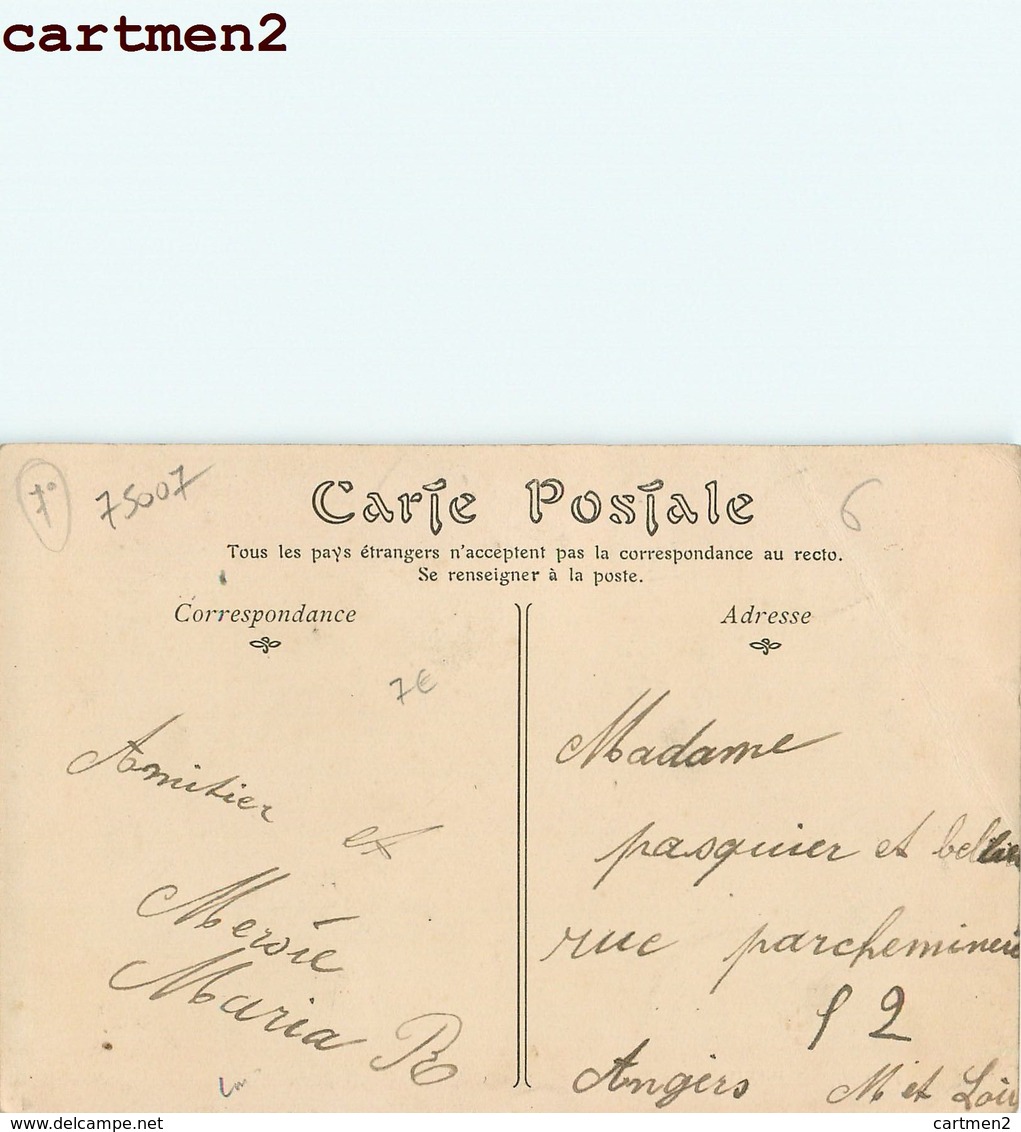 cartmen2
7°
75007
6
Carte Postale
Tous les pays étrangers n'acceptent pas la correspondance au recto.
Se renseigner à la poste.
Correspondance
7€
Amitier
et
Mersie
Maria R
Adresse
Madame
pasquier et
rue parchemineri
12
Angers M et Loir
cartmen2